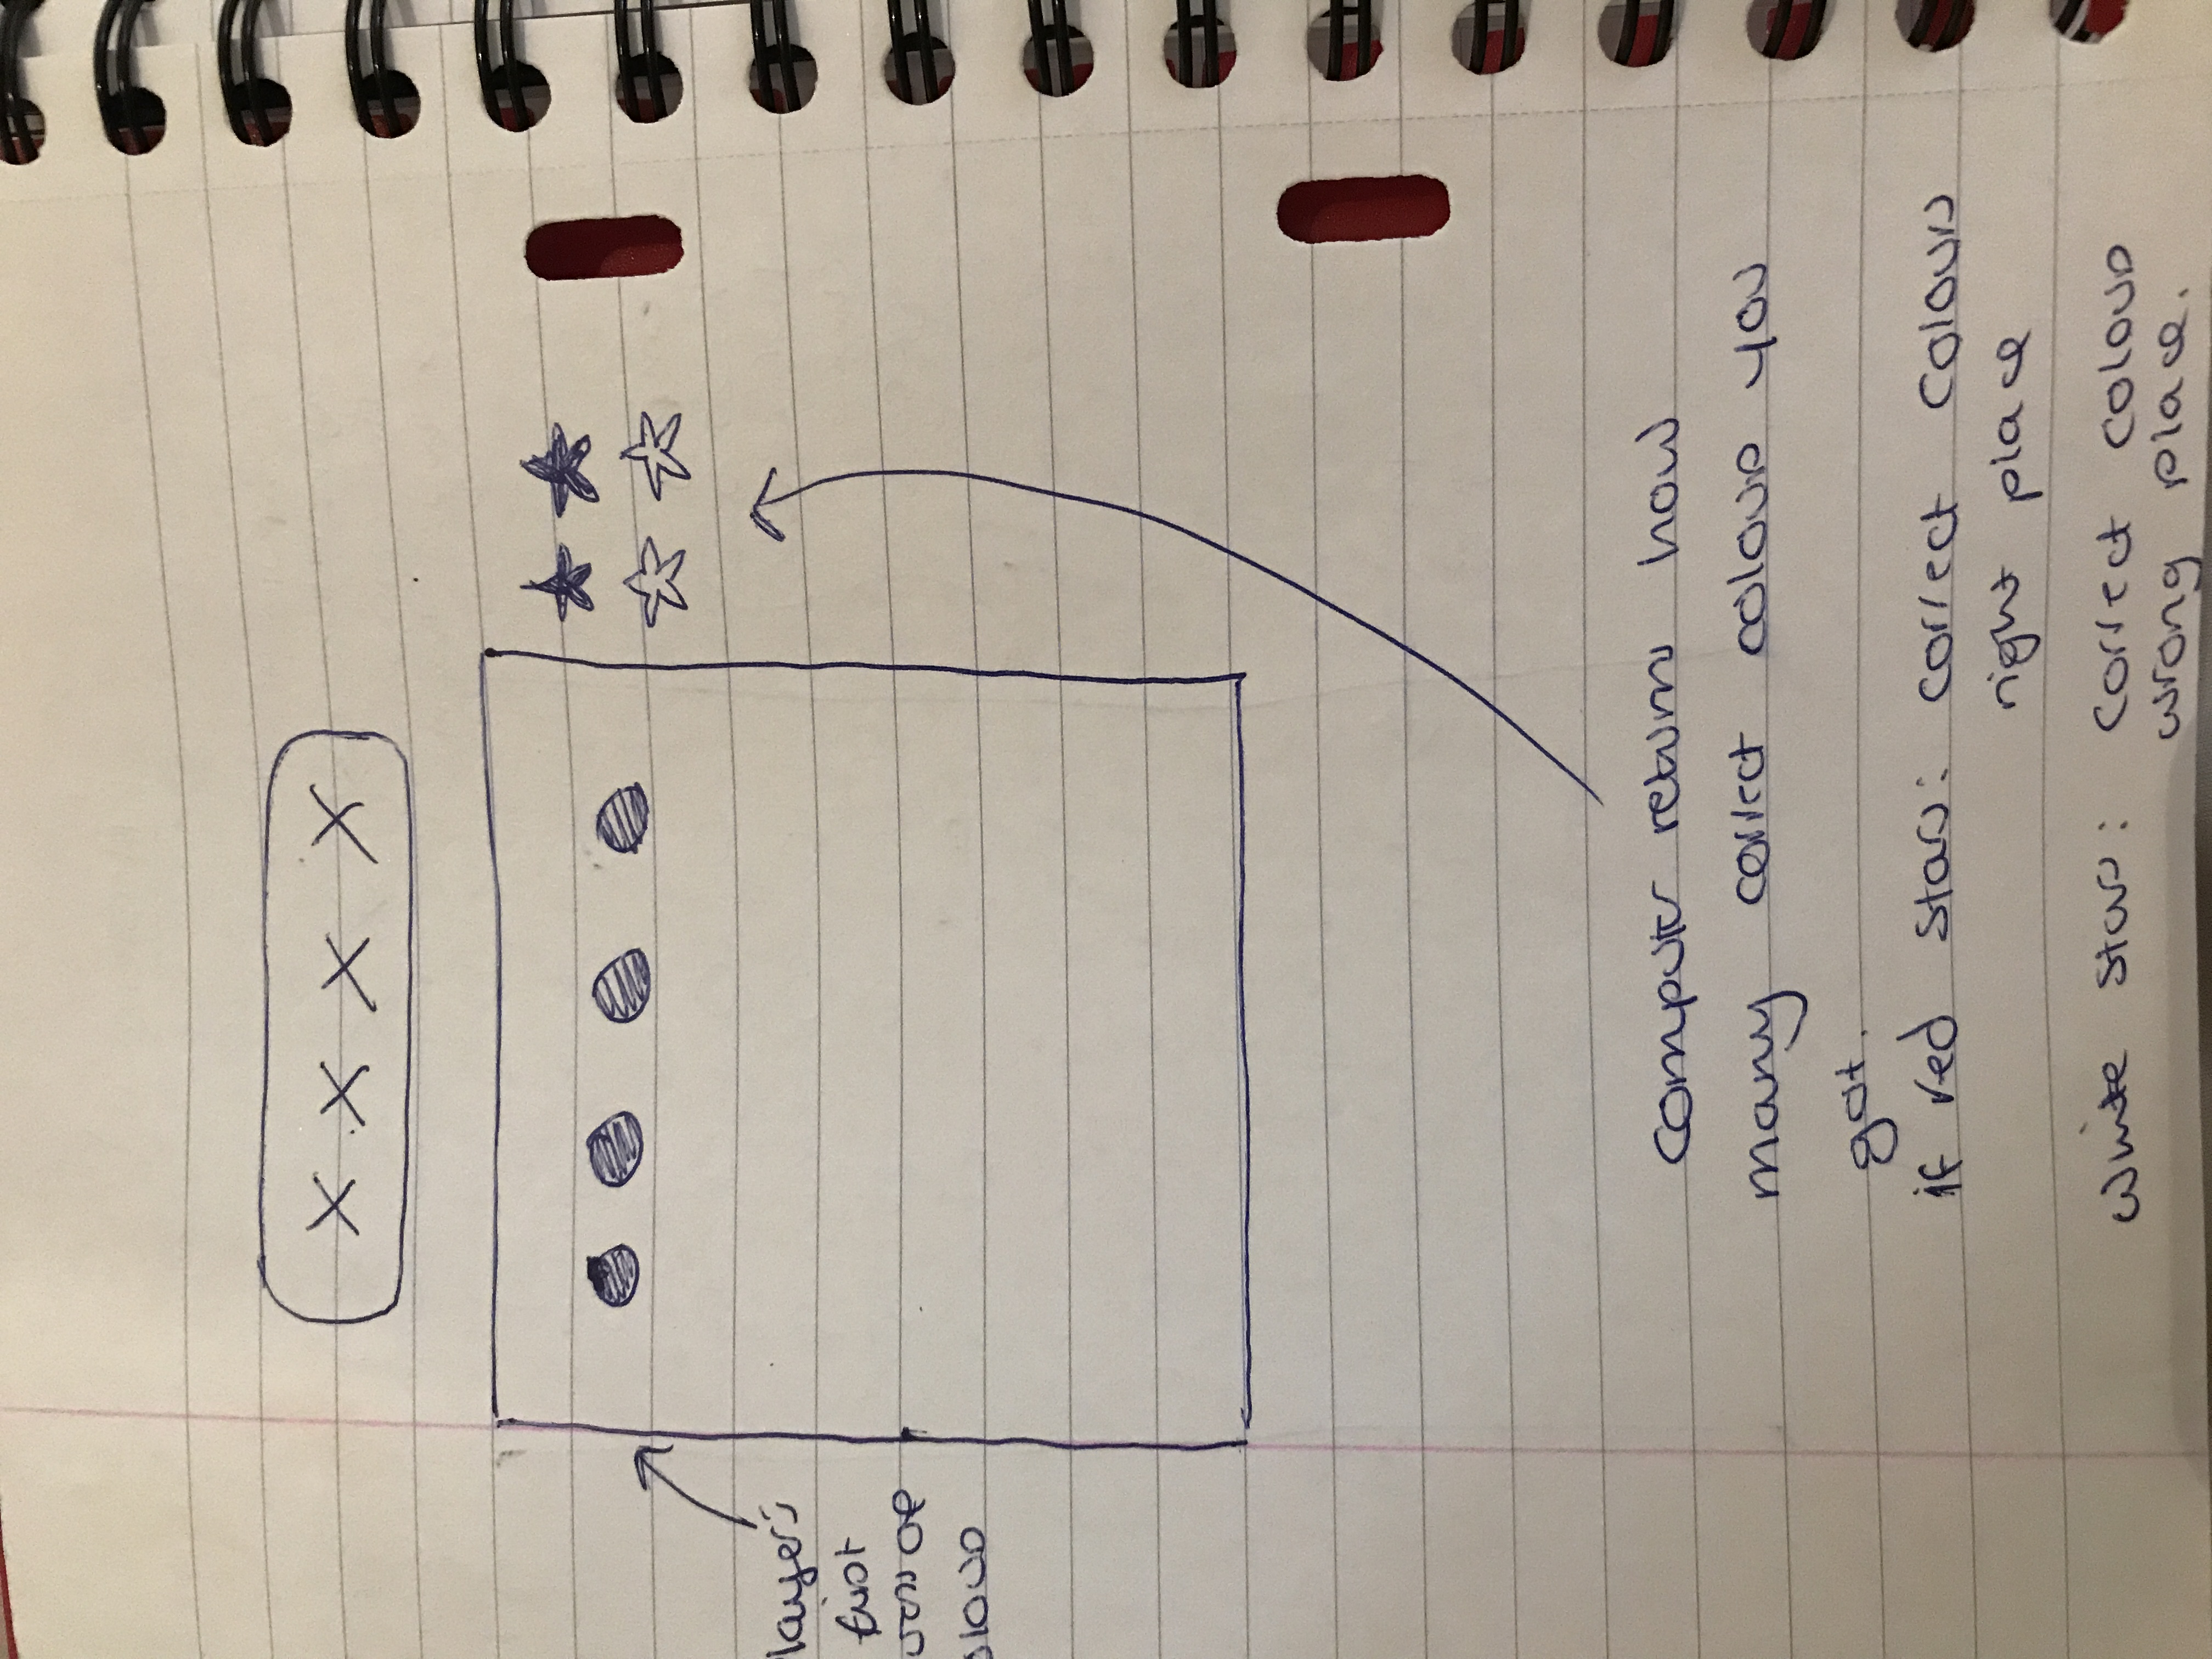 X X X X
layer's
first
of
computer returns how
many correct colours you
got.
if red stars: correct colours
right place
white stars: correct colours
wrong place.